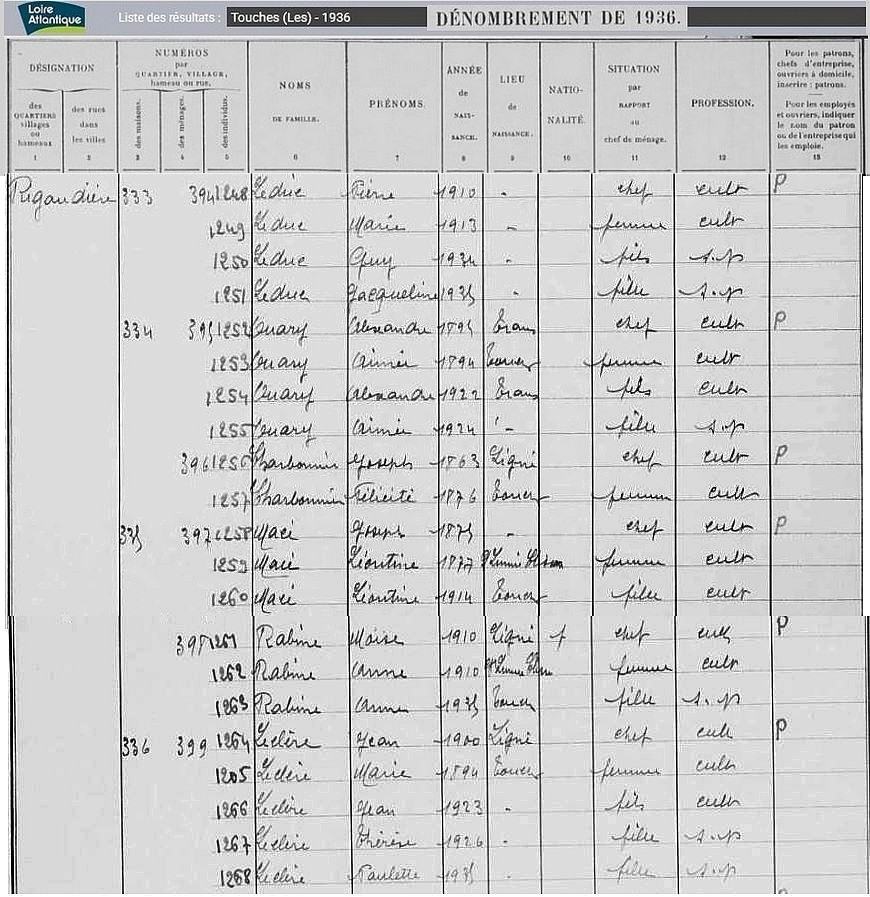 Loire Atlantique
Liste des résultats : Touches (Les) - 1936
DÉNOMBREMENT DE 1936.
DÉSIGNATION
des QUARTIERS villages ou hameaux
1
des rues dans les villes
2
NUMÉROS par QUARTIER, VILLAGE, hameau ou rue.
des maisons.
3
des ménages.
4
des individus.
5
NOMS DE FAMILLE.
6
PRÉNOMS.
7
ANNÉE de NAISSANCE.
8
LIEU de NAISSANCE.
9
NATIONALITÉ.
10
SITUATION par RAPPORT au chef de ménage.
11
PROFESSION.
12
Pour les patrons, chefs d'entreprise, ouvriers à domicile, inscrire : patrons.
Pour les employés et ouvriers, indiquer le nom du patron ou de l'entreprise qui les emploie.
13
Rigaudière 333 394 1248 Leduc Pierre 1910 - chef cult P
1249 Leduc Marie 1913 - femme cult
1250 Leduc Guy 1934 - fils s.p
1251 Leduc Jacqueline 1935 - fille s.p
334 395 1252 Ouary Alexandre 1895 Trans chef cult P
1253 Ouary Aimée 1894 Touches femme cult
1254 Ouary Alexandre 1922 Trans fils cult
1255 Ouary Aimée 1924 - fille s.p
396 1256 Charbonnier Joseph 1863 Ligné chef cult P
1257 Charbonnier Félicité 1876 Touches femme cult
335 397 1258 Macé Joseph 1875 - chef cult P
1259 Macé Léontine 1877 femme cult
1260 Macé Léontine 1914 Touches fille cult
398 1261 Rabine Moise 1910 Ligné f chef cult P
1262 Rabine Anne 1910 femme cult
1263 Rabine Anne 1935 Touches fille s.p
336 399 1264 Leclère Jean 1900 Ligné chef cult P
1265 Leclère Marie 1894 Touches femme cult
1266 Leclère Jean 1923 - fils cult
1267 Leclère Thérèse 1926 - fille s.p
1268 Leclère Paulette 1935 - fille s.p